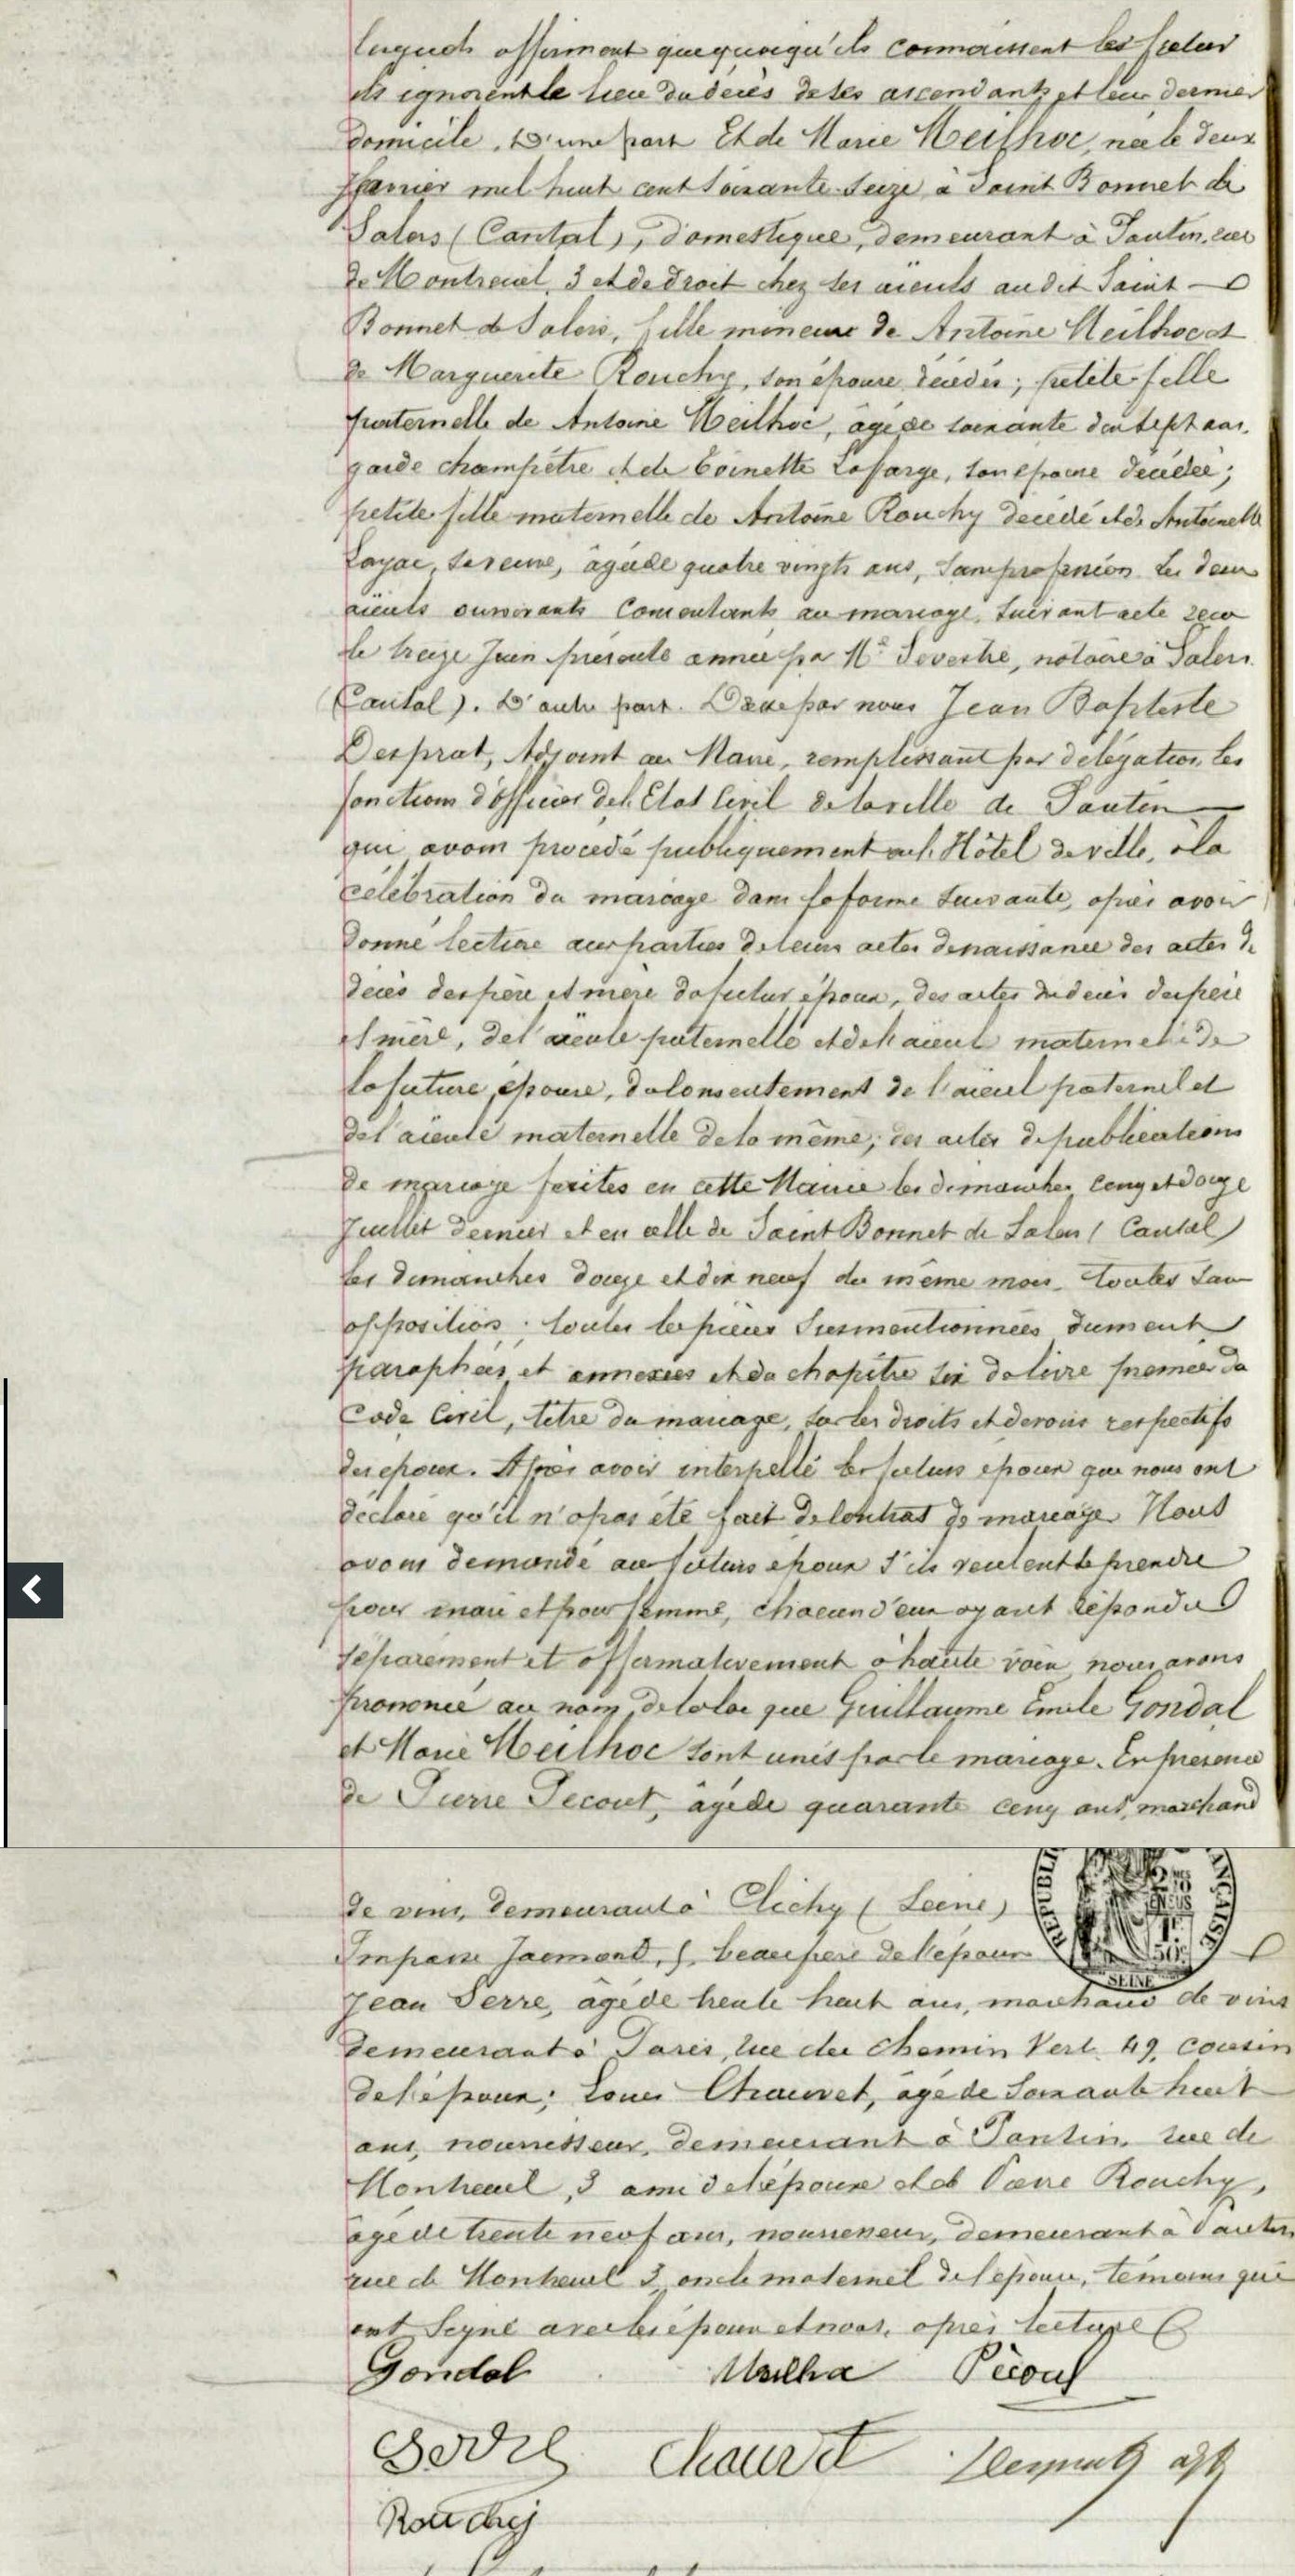 lesquels affirment que quoiqu'ils connaissent les futur
ils ignorent le lieu du décès de ses ascendants et leur dernier
domicile. D'une part Et de Marie Meilhoc, née le deux
janvier mil huit cent soixante seize à Saint Bonnet de
Salers (Cantal), domestique, demeurant à Pantin, rue
de Montreuil, 3 et de droit chez ses aïeuls audit Saint
Bonnet de Salers, fille mineure de Antoine Meilhoc et
de Marguerite Rouchy, son épouse décédés; petite fille
paternelle de Antoine Meilhoc, âgé de soixante dix sept ans,
garde champêtre et de Toinette Lafarge, son épouse décédée;
petite fille maternelle de Antoine Rouchy décédé et de Antoinette
Layac, sa veuve, âgée de quatre vingts ans, sans profession. Les deux
aïeuls survivants consentants au mariage, suivant acte reçu
le treize Juin présente année par Me Sevestre, notaire à Salers
(Cantal). D'autre part. Dressé par nous Jean Baptiste
Desprat, Adjoint au Maire, remplissant par délégation les
fonctions d'officier de l'Etat Civil de la ville de Pantin
qui avons procédé publiquement en l'Hôtel de ville, à la
célébration du mariage dans la forme suivante, après avoir
donné lecture aux parties de leurs actes de naissance des actes de
décès des père et mère du futur époux, des actes de décès des père
et mère, de l'aïeule paternelle et de l'aïeul maternel de
la future épouse, du consentement de l'aïeul paternel et
de l'aïeule maternelle de la même; des actes de publications
de mariage faites en cette Mairie les dimanches cinq et douze
Juillet dernier et en celle de Saint Bonnet de Salers (Cantal)
les dimanches douze et dix neuf du même mois. toutes sans
opposition; toutes les pièces susmentionnées dument
paraphées et annexées et du chapitre six du livre premier du
Code Civil, titre du mariage, sur les droits et devoirs respectifs
des époux. Après avoir interpellé les futurs époux qui nous ont
déclaré qu'il n'a pas été fait de contrat de mariage. Nous
avons demandé aux futurs époux s'ils veulent se prendre
pour mari et pour femme, chacun d'eux ayant répondu
séparément et affirmativement à haute voix, nous avons
prononcé au nom de la loi que Guillaume Emile Gondal
et Marie Meilhoc sont unis par le mariage. En présence
de Pierre Pecout, âgé de quarante cinq ans, marchand
de vins, demeurant à Clichy (Seine)
Impasse Jacmond, 5, beau père de l'époux
Jean Serre, âgé de trente huit ans, marchand de vins
demeurant à Paris, rue du Chemin Vert, 49, cousin
de l'époux; Louis Chauvet, âgé de soixante huit
ans, nourrisseur, demeurant à Pantin, rue de
Montreuil, 3 ami de l'épouse et de Pierre Rouchy,
âgé de trente neuf ans, nourrisseur, demeurant à Pantin
rue de Montreuil 3, oncle maternel de l'épouse, témoins qui
ont signé avec les époux et nous, après lecture
REPUBLIQUE FRANÇAISE
SEINE
Gondal Meilhoc Pécout
Serre Chauvet Desprat adjt
Rouchy